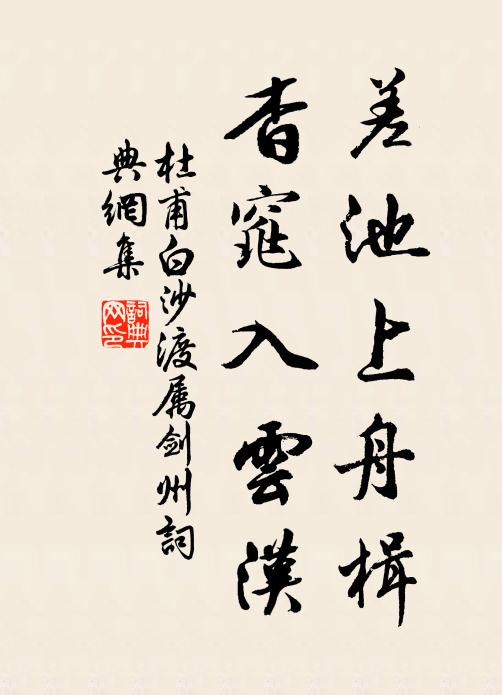 差池上舟楫
杳窕入雲漢
杜甫白沙渡属劍州詞
典網集
詞典网印